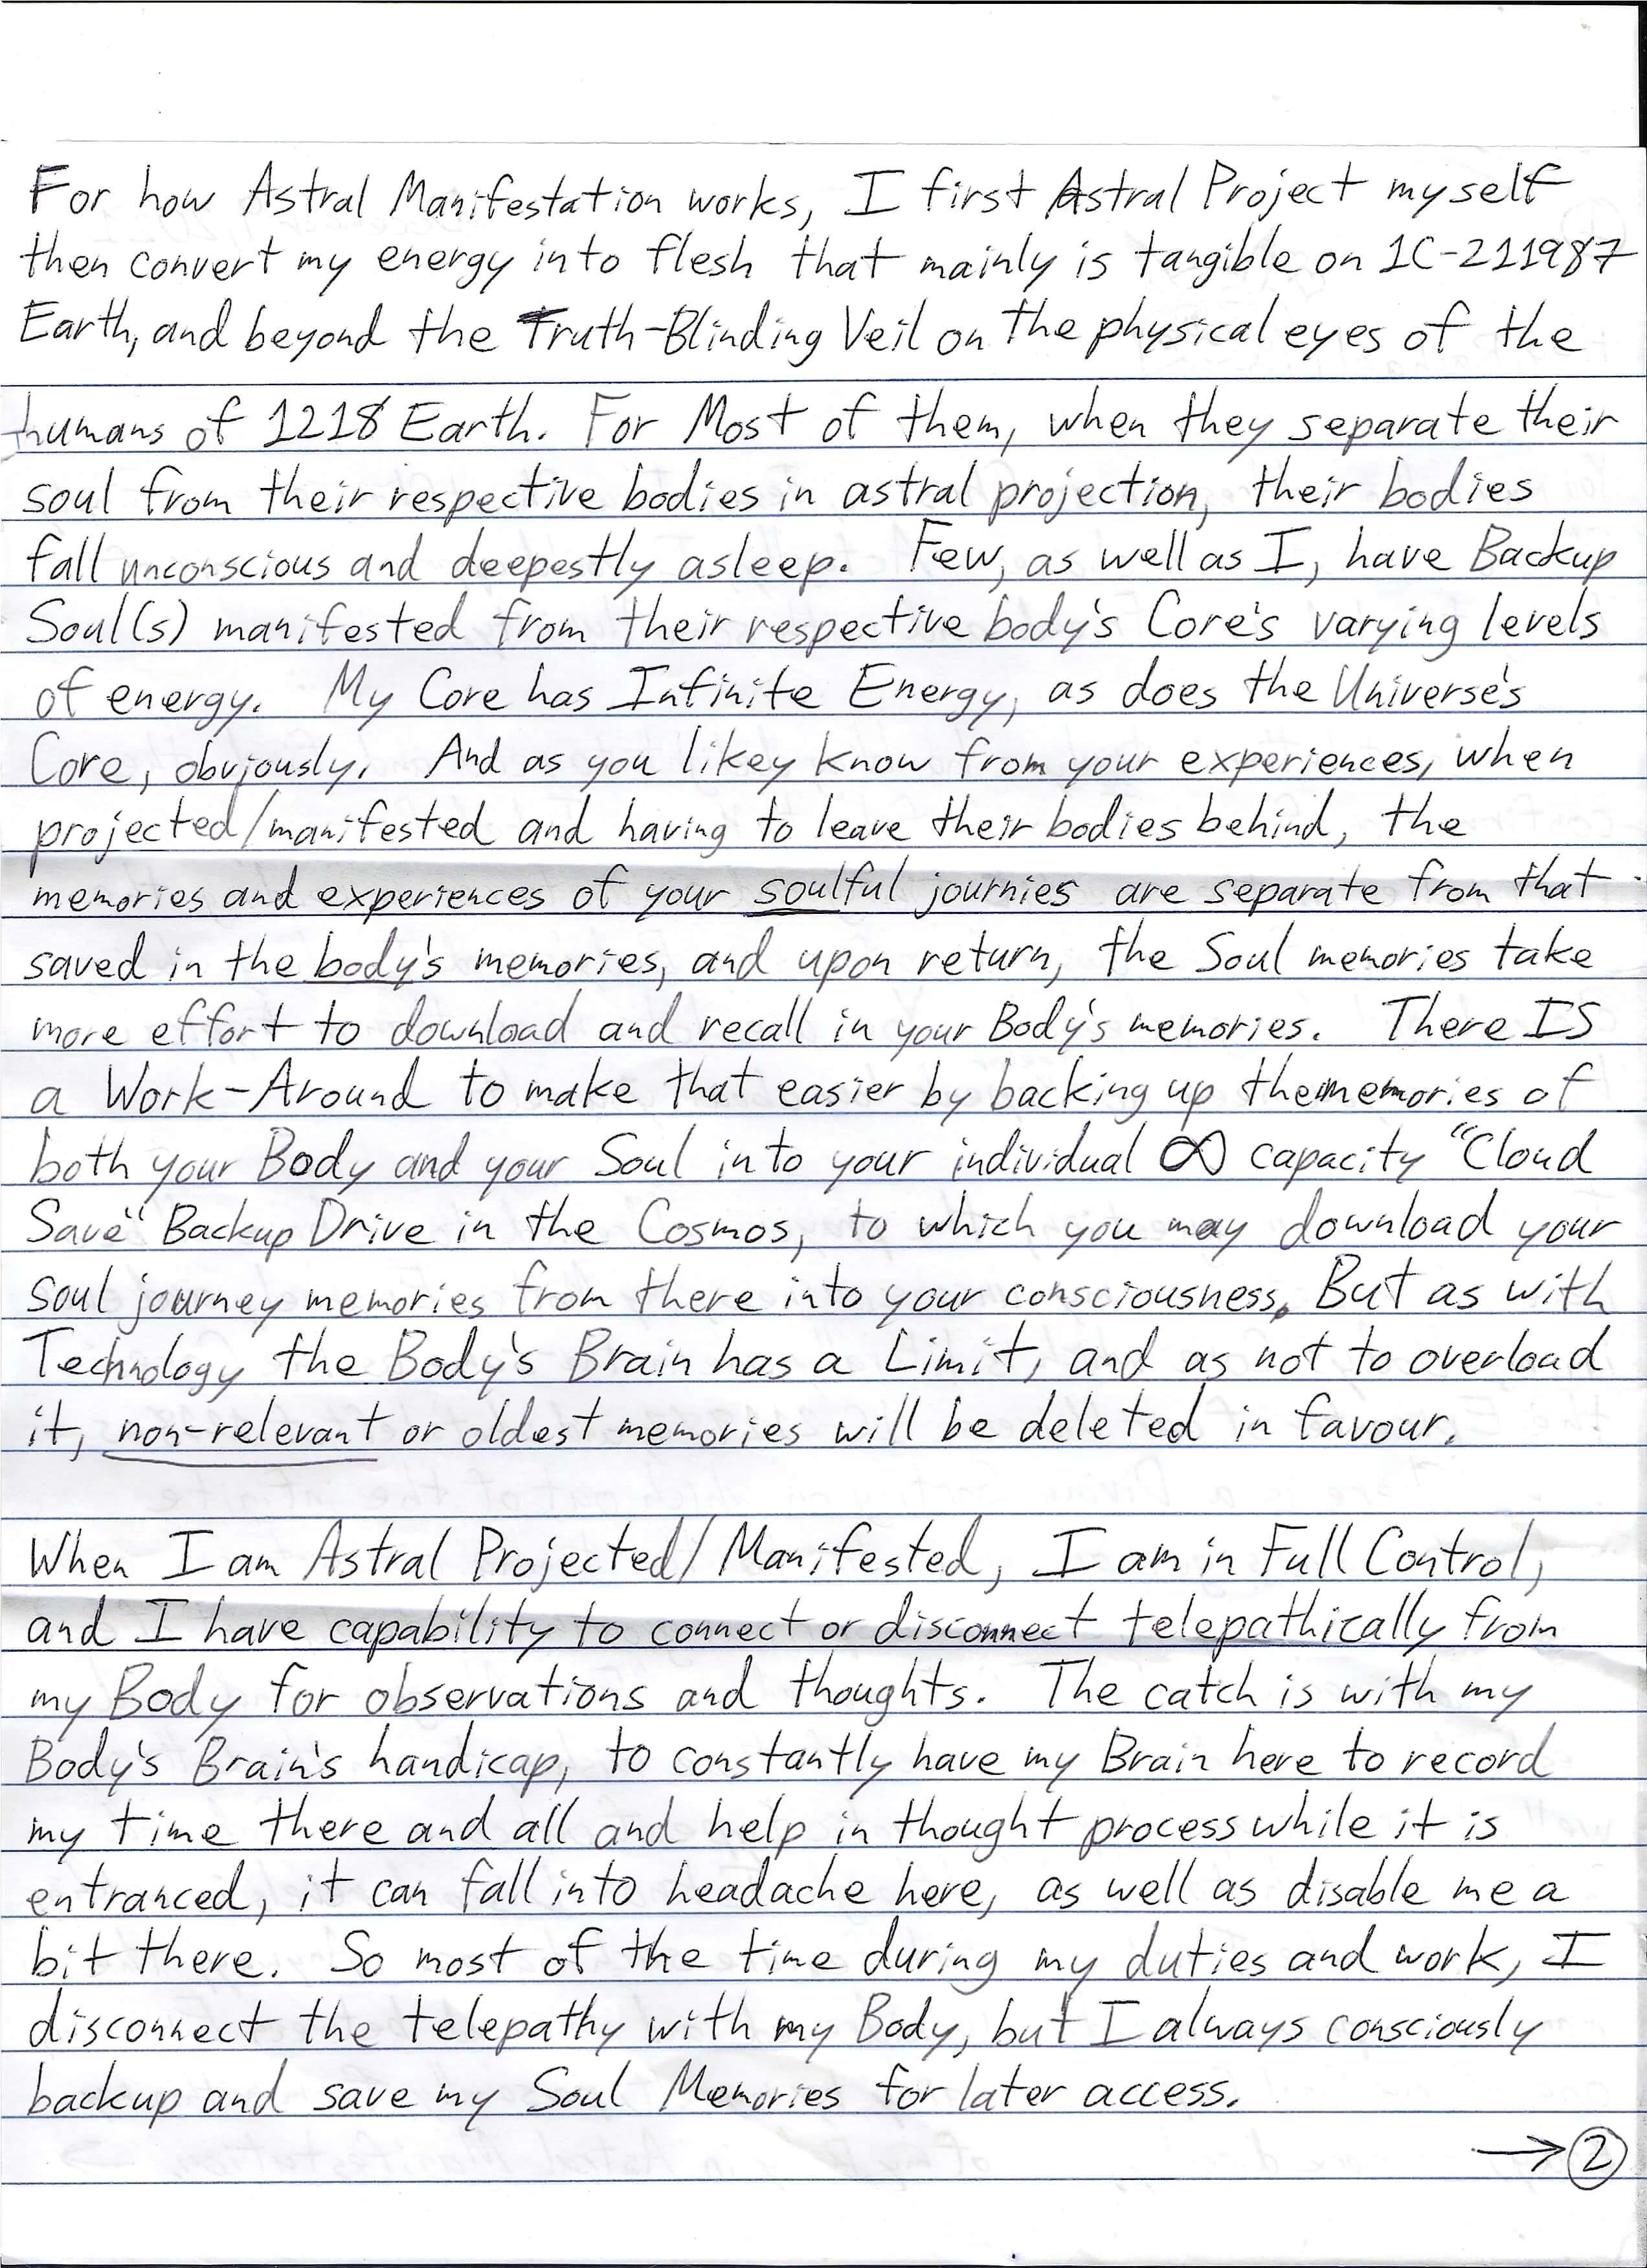 For how Astral Manifestation works, I first Astral Project myself
then convert my energy into flesh that mainly is tangible on 1C-211987
Earth, and beyond the Truth-Blinding Veil on the physical eyes of the
humans of 1218 Earth. For Most of them, when they separate their
soul from their respective bodies in astral projection, their bodies
fall unconscious and deepestly asleep. Few, as well as I, have Backup
Soul(s) manifested from their respective body's Core's varying levels
of energy. My Core has Infinite Energy, as does the Universe's
Core, obviously. And as you likey know from your experiences, when
projected/manifested and having to leave their bodies behind, the
memories and experiences of your soulful journies are separate from that
saved in the body's memories, and upon return, the Soul memories take
more effort to download and recall in your Body's memories. There IS
a Work-Around to make that easier by backing up the memories of
both your Body and your Soul into your individual ∞ capacity "Cloud
Save" Backup Drive in the Cosmos, to which you may download your
soul journey memories from there into your consciousness. But as with
Technology the Body's Brain has a Limit, and as not to overload
it, non-relevant or oldest memories will be deleted in favour.
When I am Astral Projected/Manifested, I am in Full Control,
and I have capability to connect or disconnect telepathically from
my Body for observations and thoughts. The catch is with my
Body's Brain's handicap, to constantly have my Brain here to record
my time there and all and help in thought process while it is
entranced, it can fall into headache here, as well as disable me a
bit there. So most of the time during my duties and work, I
disconnect the telepathy with my Body, but I always consciously
backup and save my Soul Memories for later access.
→ 2